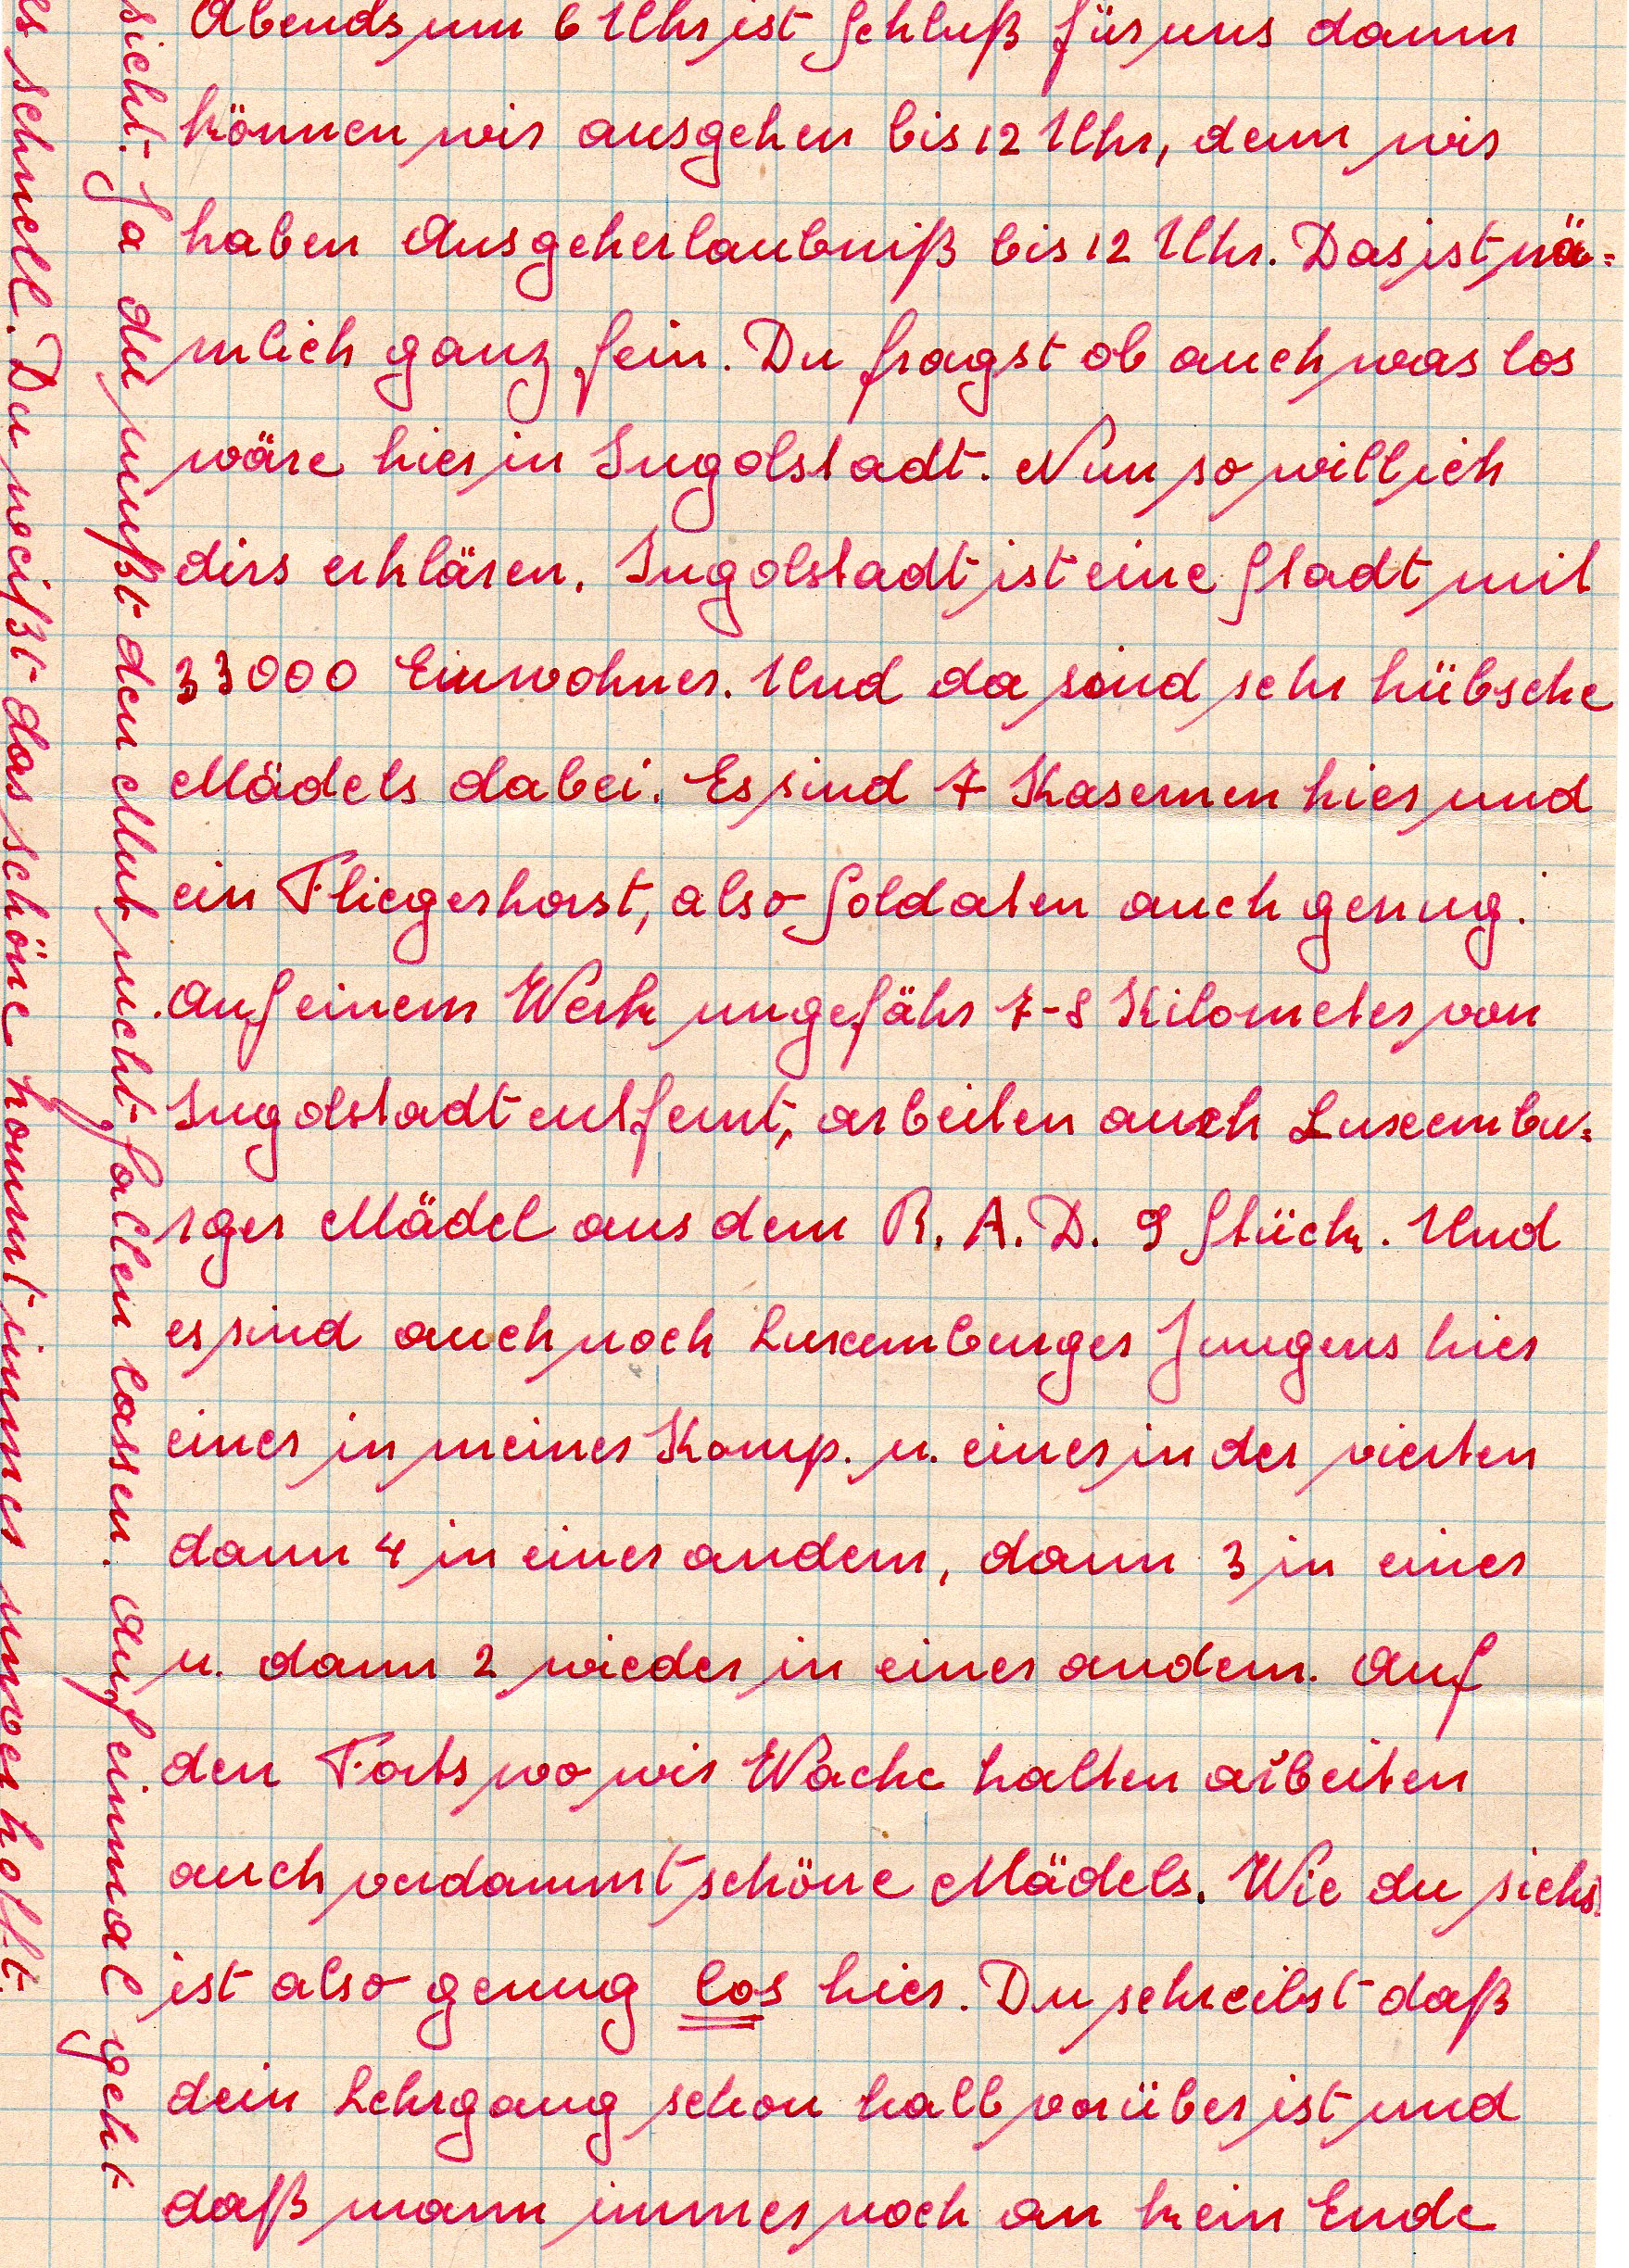 Abends um 6 Uhr ist Schluß für uns dann
können wir ausgehen bis 12 Uhr, denn wir
haben Ausgeherlaubniß bis 12 Uhr. Das ist nä=
mlich ganz fein. Du fragst ob auch was los
wäre hier in Ingolstadt. Nun so will ich
dirs erklären. Ingolstadt ist eine Stadt mit
33000 Einwohner. Und da sind sehr hübsche
Mädels dabei. Es sind 7 Kasernen hier und
ein Fliegerhorst, also Soldaten auch genug.
Auf einem Werk ungefähr 7-8 Kilometer von
Ingolstadt entfernt, arbeiten auch Luxembu=
rger Mädel aus dem R. A. D. 9 Stück. Und
es sind auch noch Luxemburger Jungens hier
einer in meiner Komp. u. einer in der vierten
dann 4 in einer andern, dann 3 in einer
u. dann 2 wieder in einer andern. Auf
den Forts wo wir Wache halten arbeiten
auch verdammt schöne Mädels. Wie du siehst
ist also genug los hier. Du schreibst daß
dein Lehrgang schon halb vorüber ist und
daß mann immer noch an kein Ende
sieht. Ja du mußt den Mut nicht fallen lassen. Auf einmal geht
es schnell. Du weißt das schöne kommt immer unverhofft.